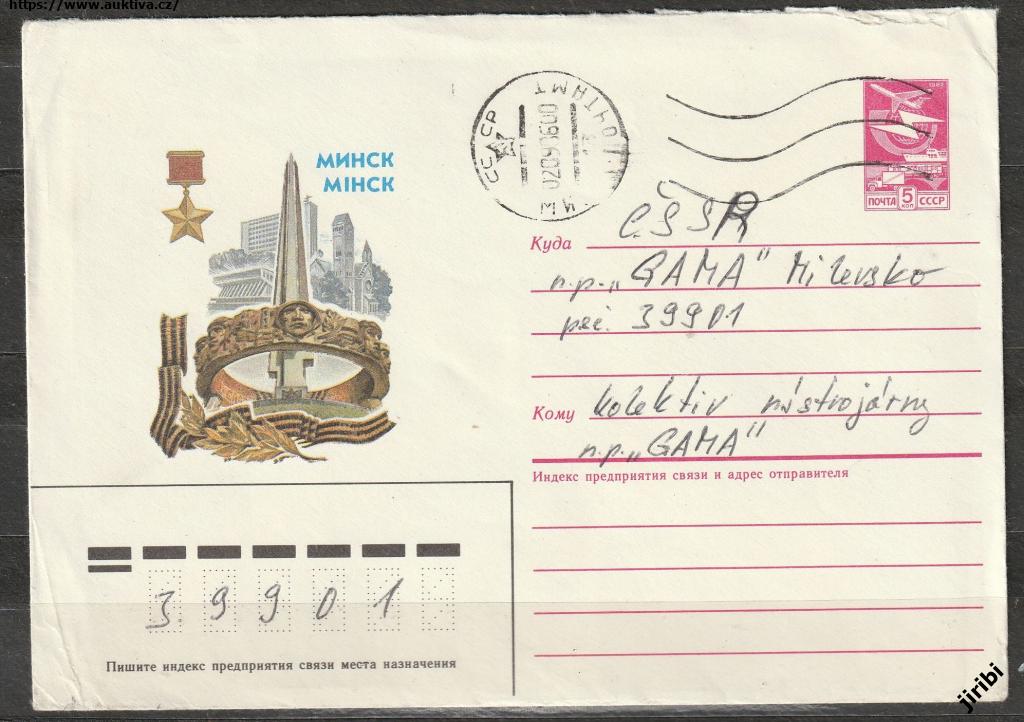 https://www.auktiva.cz/
МИНСК
МІНСК
СССР
МИ ПОЧТАМТ
0209861600
1982
ПОЧТА 5 КОП СССР
ČSSR
Куда
n.p. „GAMA" Milevsko
psč. 39901
Кому kolektiv nástrojárny
n.p. „GAMA"
Индекс предприятия связи и адрес отправителя
39901
Пишите индекс предприятия связи места назначения
jiribi